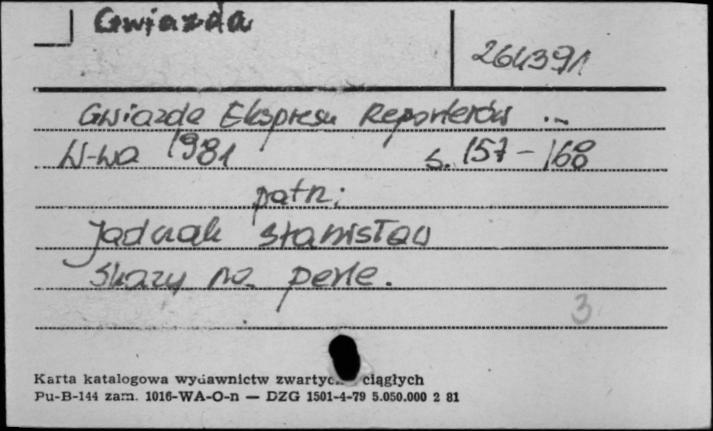 Gwiazda
264391
Gwiazda Ekspresu Reporterów ...
W-wa 1981 s. 157-168
patrz:
Jadczak Stanisław
Skazy na perle.
3
Karta katalogowa wydawnictw zwartych ciągłych
Pu-B-144 zam. 1016-WA-O-n — DZG 1501-4-79 5.050.000 2 81